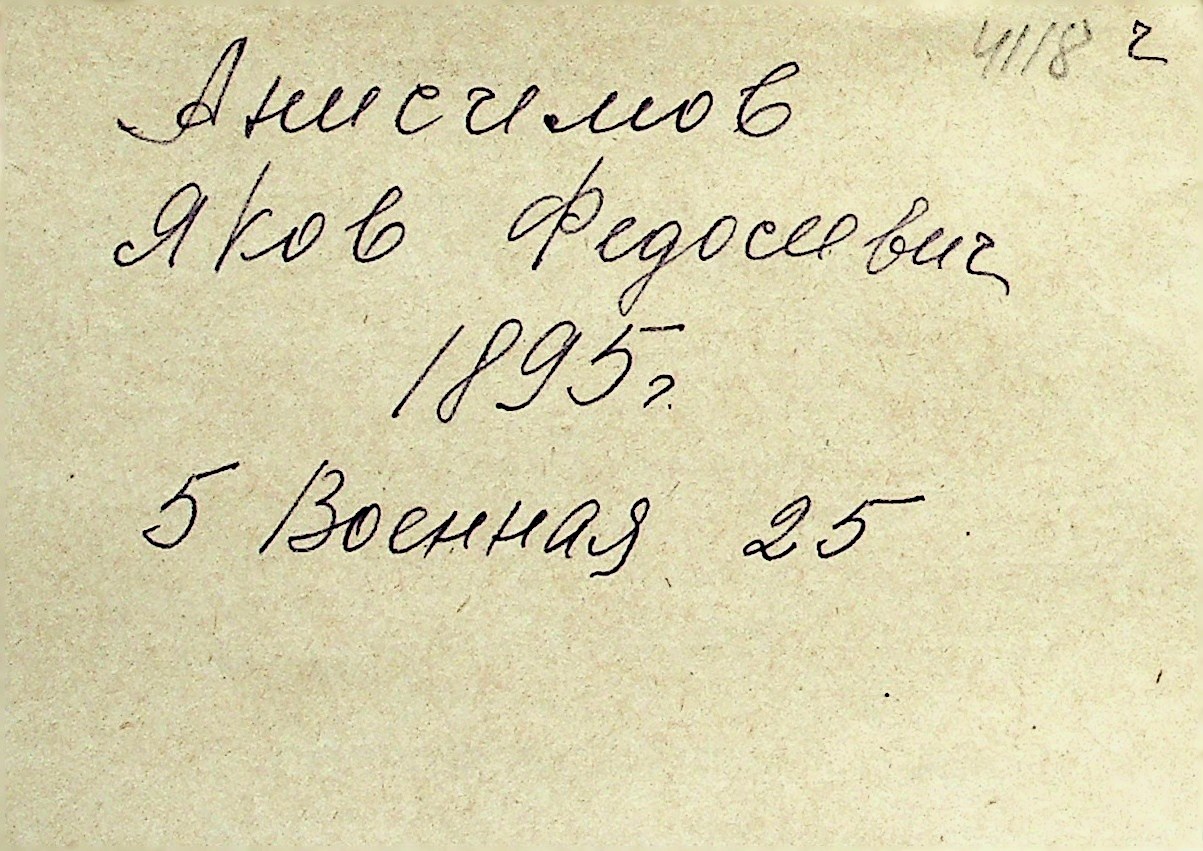 4118 ч
Анисимов
Яков Федосеевич
1895г.
5 Военная 25